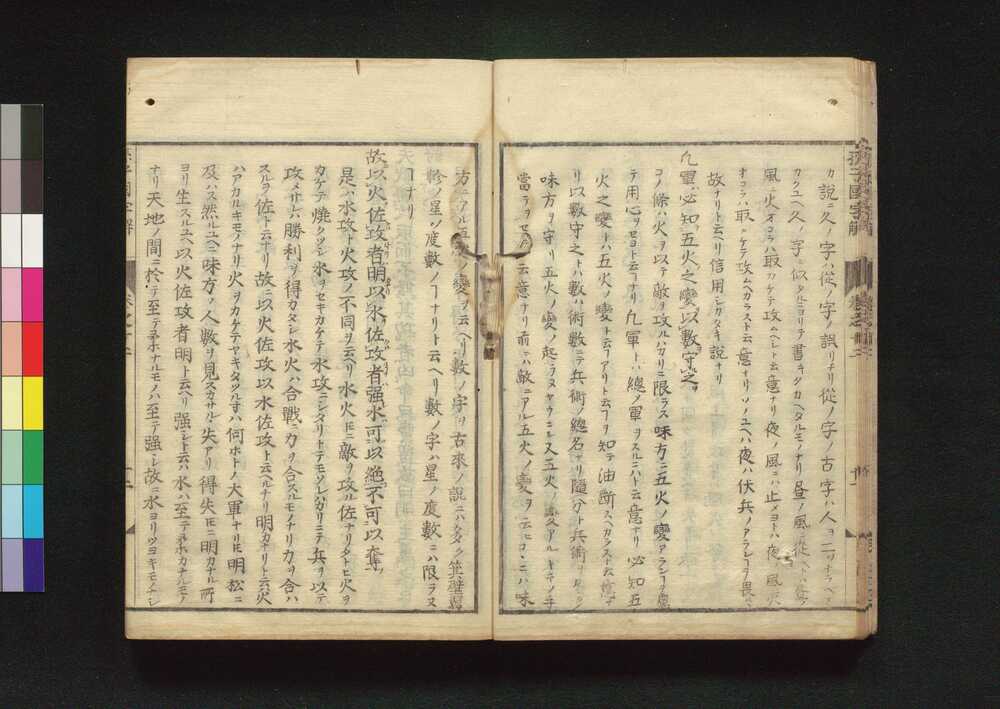 カ說ニ久ノ字ハ從ノ字ノ誤リナリ從ノ字ノ古字ハ人ヲ二ツナラヘテ
カクユヘ久ノ字ニ似タルニヨリテ書キタカヘタルモノナリ昼ノ風ニ從ヘトハ昼ノ
風ニ火オコラハ取カケテ攻ムヘシト云意ナリ夜ノ風ニハ止メヨトハ夜ノ風ニ火
オコラハ取カケテ攻ムヘカラスト云意ナリソノユヘハ夜ハ伏兵ノアランコヲ畏ルヽ
故ナリト云ヘリ信用シカタキ說ナリ
凡軍必知五火之變以數守之
コノ條ハ火ヲ以テ敵ヲ攻ルハカリニ限ラス味方ニ五火ノ變アランコヲ慮
テ用心ヲセヨト云コナリ凡軍トハ總ノ軍ヲスルニハト云意ナリ必知五
火之變トハ五火ノ變ト云コアリト云コヲ知テ油斷スヘカラスト云意ナ
リ以數守之トハ數ハ術數ニテ兵術ノ總名ナリ隨分ト兵術ヲ
味方ヲ守リ五火ノ變ノ起ラヌヤウニシ又五火ノ變アルキテノ手
當ヲ云意ナリ前ニハ敵ニアル五火ノ變ヲ云ヒコヽニハ味
方ニアル五火ノ變ヲ云ヘリ數ノ字ヲ古來ノ說ニハ箕壁翼
軫ノ星ノ度數ノコナリト云ヘリ數ノ字ハ星ノ度數ニハ限ラヌ
コナリ
故以火佐攻者明以水佐攻者强水可以絶不可以奪
是ハ水攻ト火攻ノ不同ヲ云ヘリ水火トモニ敵ヲ攻ル佐ナリタトヒ火ヲ
カケテ燒クツシ水ヲセキカケテ水攻ニシタリトテモソレハカリニテ兵ヲ以テ
攻メサレハ勝利ヲ得カタシ水火ハ合戰ニカヲ合スルモノナリカヲ合ハ
スルヲ佐ト云ナリ故ニ以火佐攻以水佐攻ト云ヘルナリ明カナリトニ云火
ハアカルキモノナリ火ヲカケテヤキタツルキハ何ホトノ大軍ナリトモ明松ニ
及ハス然ルユヘニ味方ノ人數ヲ見スカサル失アリ得失トモニ明カナル所
ヨリ生スルユヘ以火佐攻者明ト云ヘリ强シト云ハ水ハ至テ柔カナルモノ
ナリ天地ノ間ニ於テ至テ柔ナルモノハ至テ强シ故ニ水ヨリツヨキモノナシ
孫子國字解